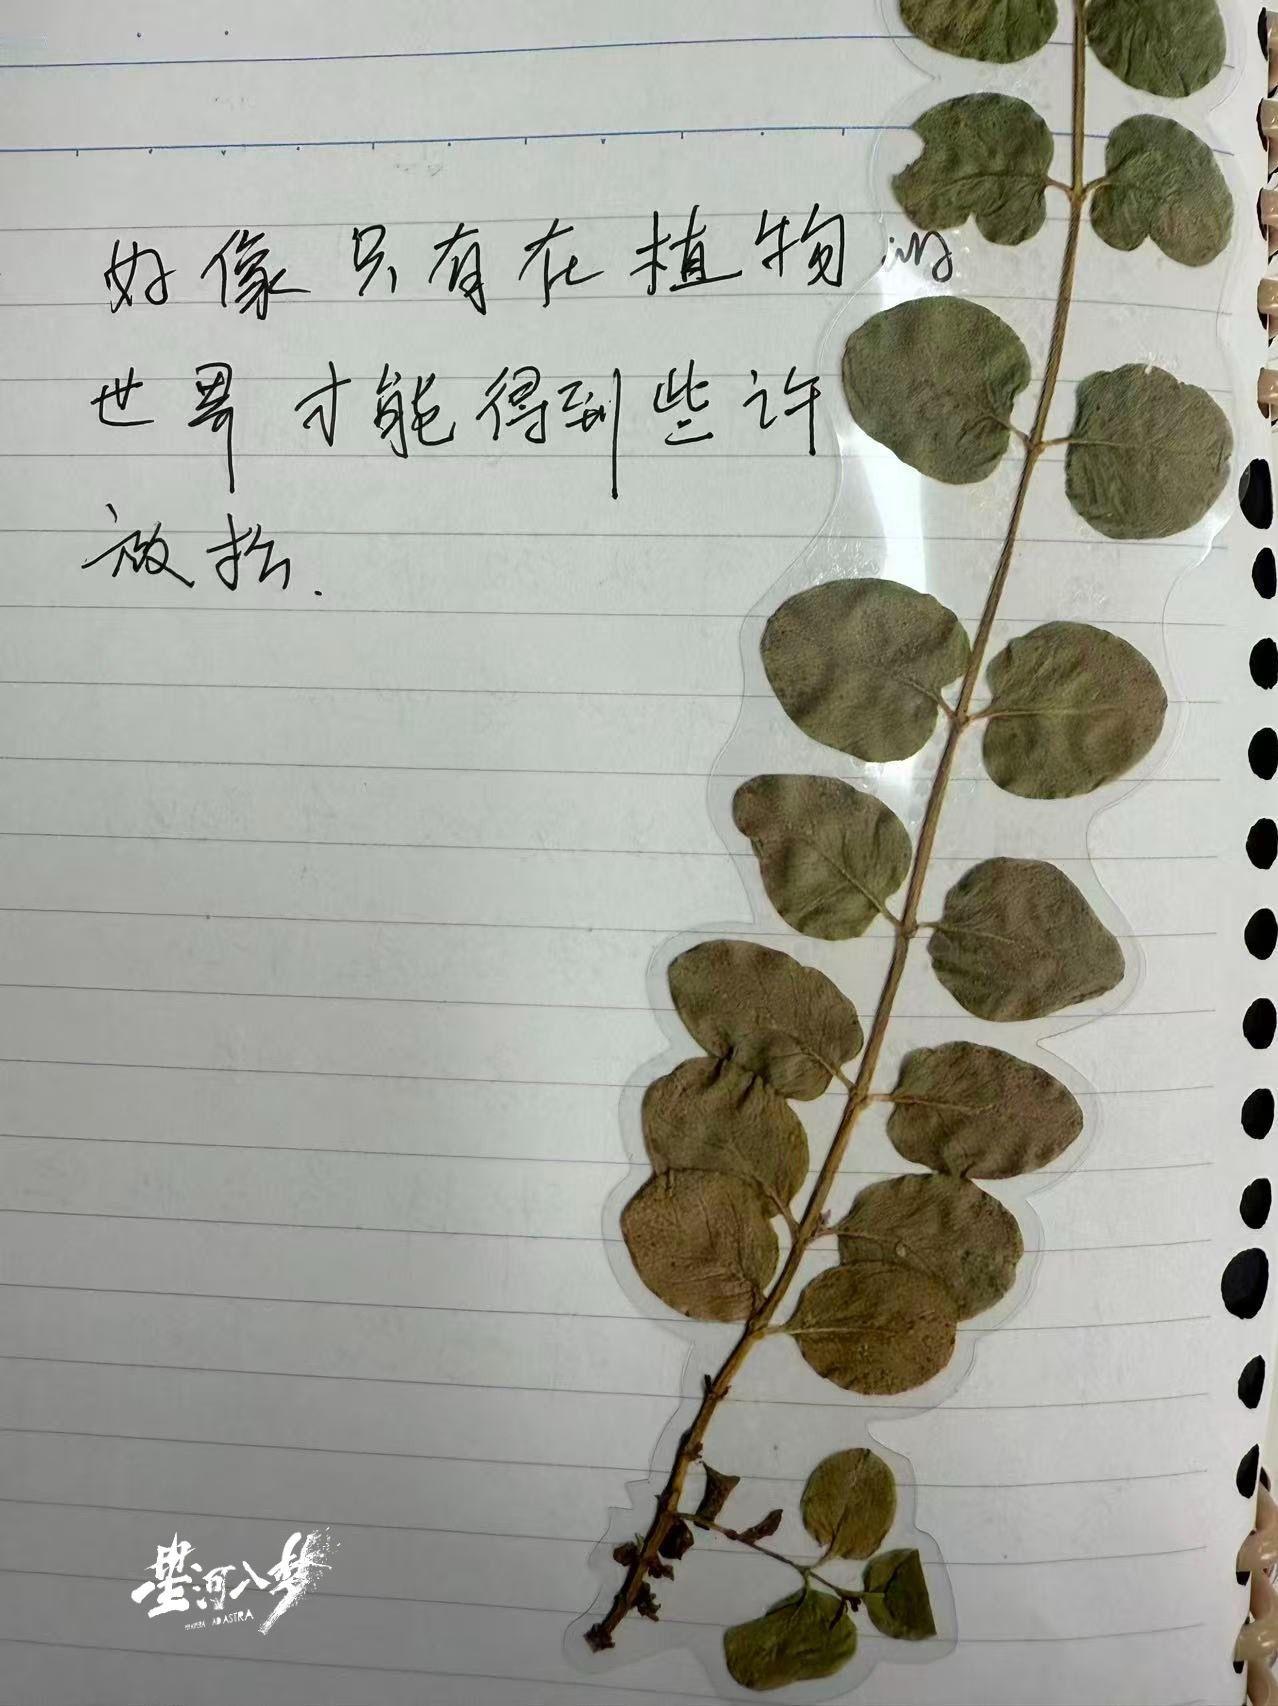 好像只有在植物的
世界才能得到些许
放松.
星河入梦
PER ASPERA AD ASTRA